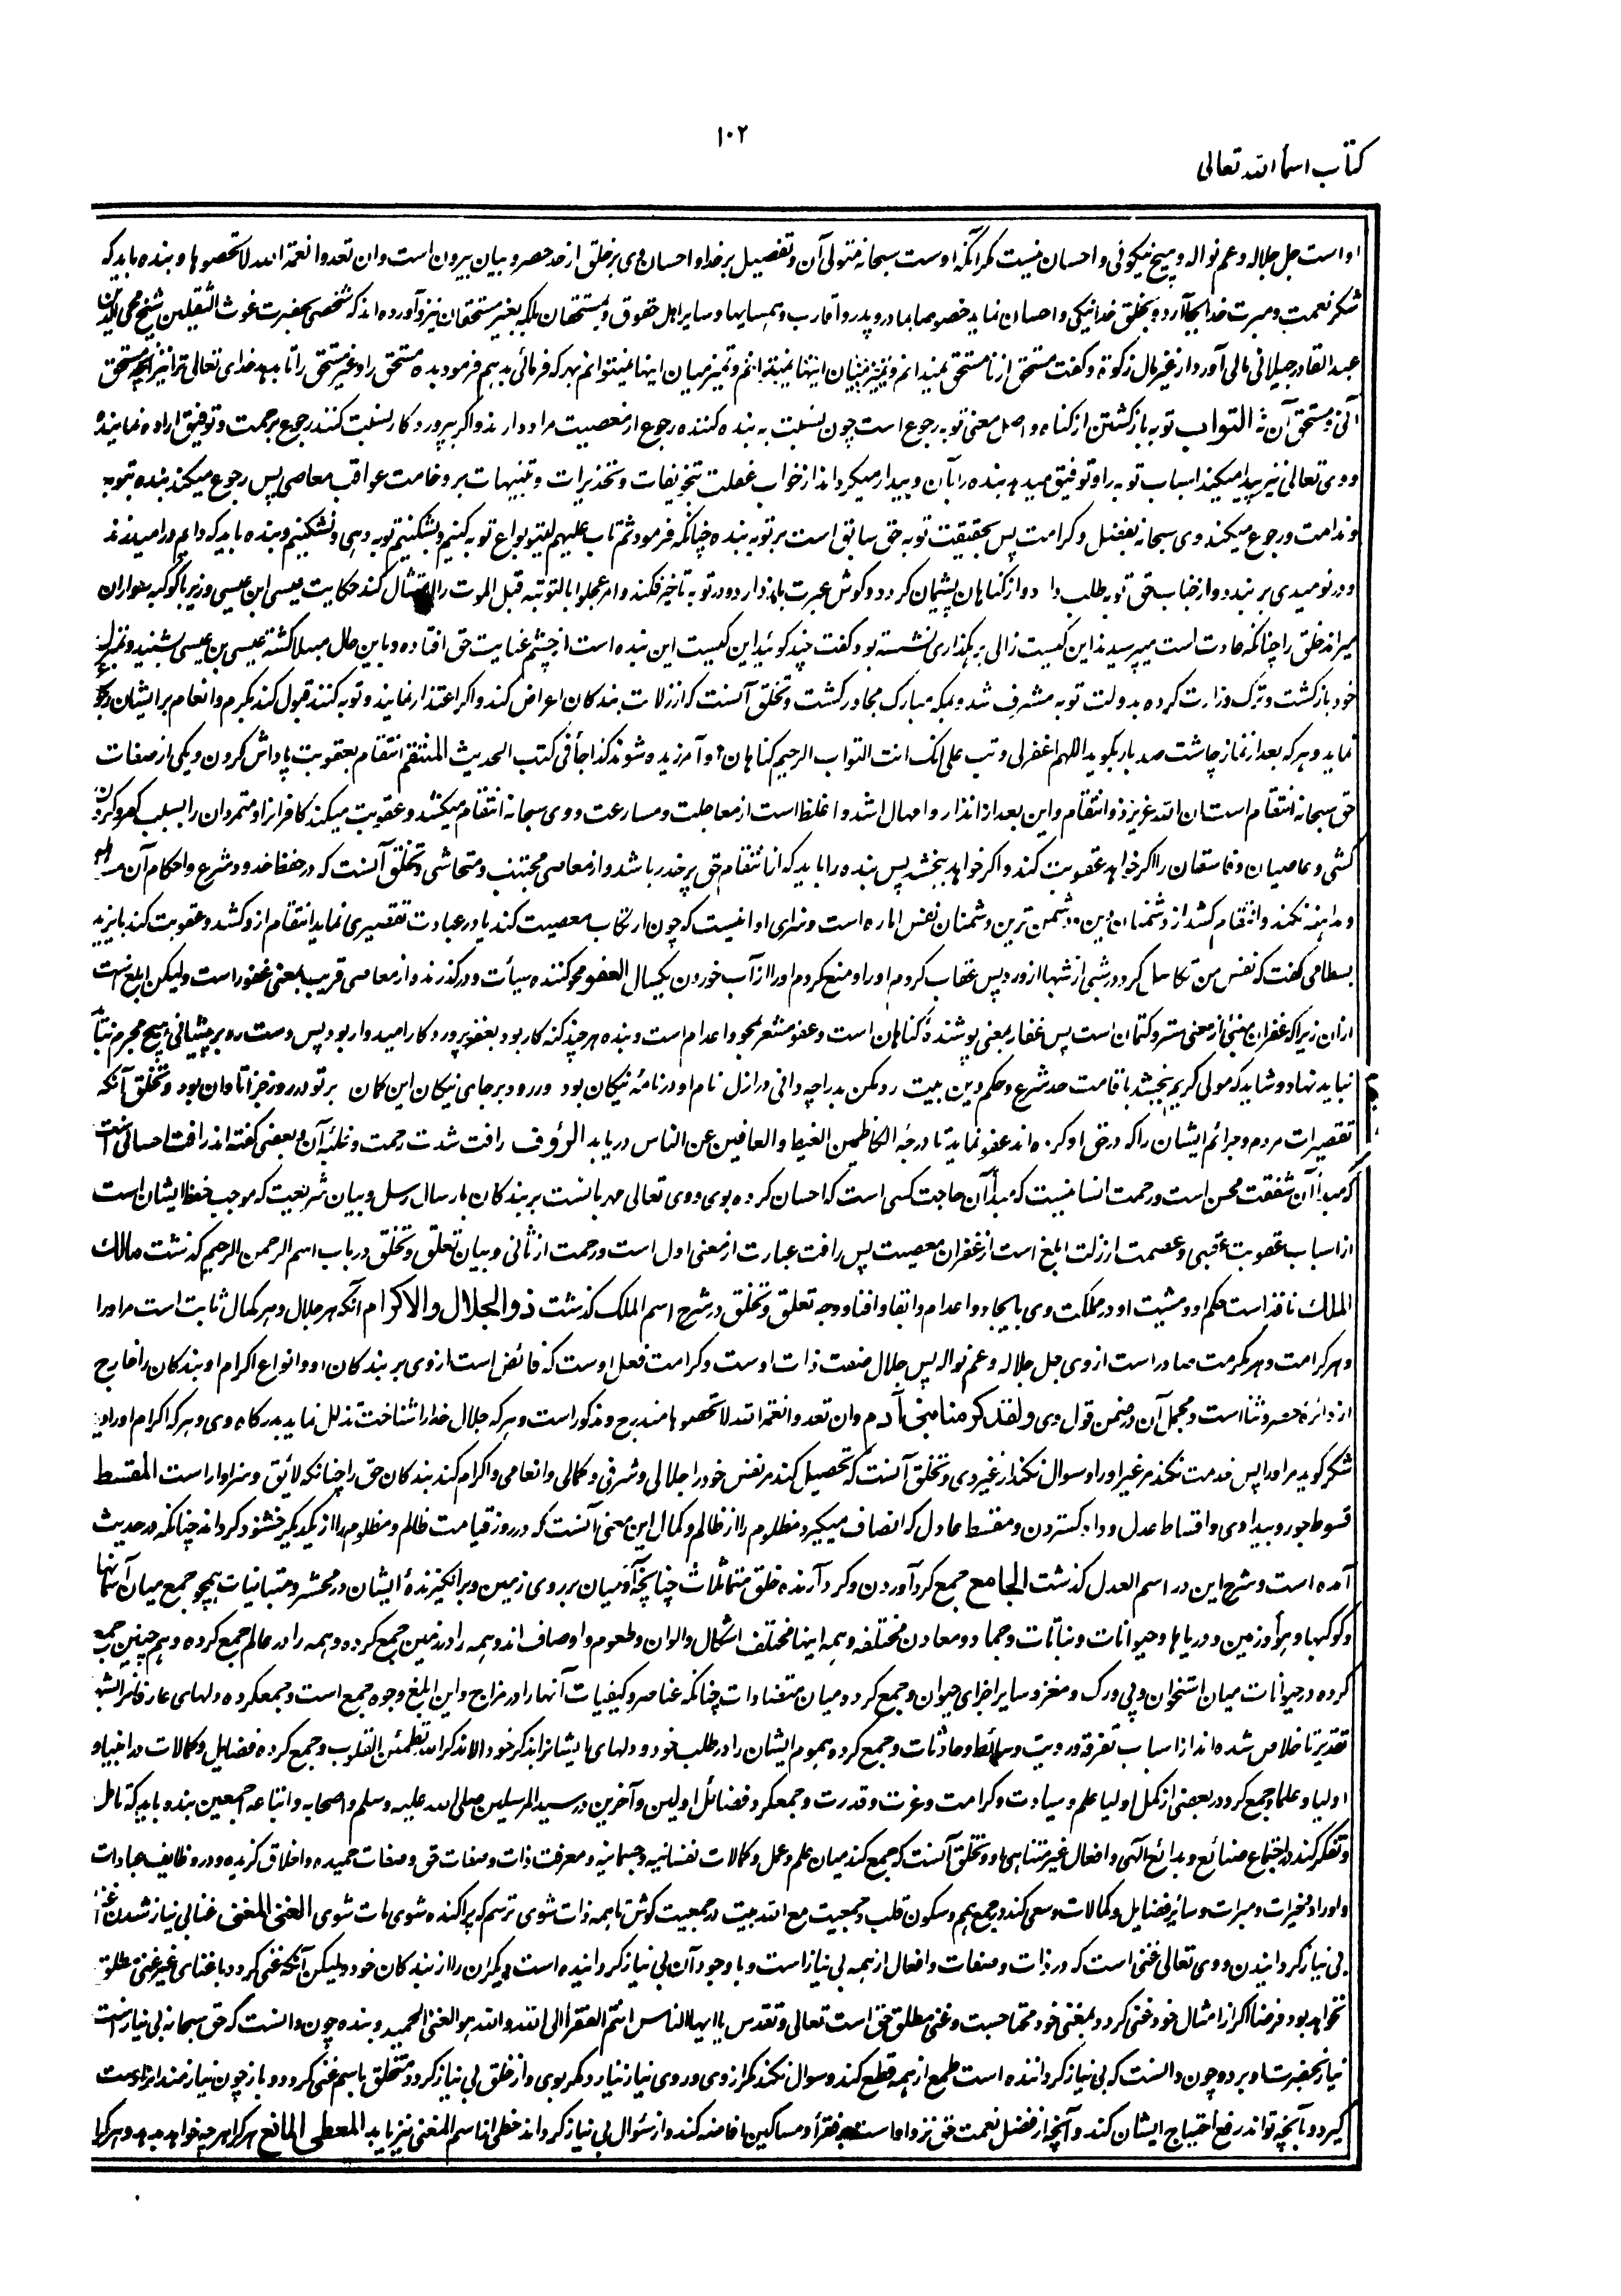 ۱۰۲
کتاب اسماء الله تعالی
او است جل جلاله و عم نواله و هیچ نیکوئی و احسان نیست مگر آنکه اوست سبحانه متولی آن و تفصیل بر خدا و احسان وی بر خلق از حد حصر و بیان بیرون است وان تعدوا نعمة الله لا تحصوها و بنده باید که
شکر نعمت و مبرت خدا بجا آرد و بخلق خدا نیکی و احسان نماید خصوصا بمادر و پدر و اقارب و همسایها و سایر اهل حقوق و بمستحقان بلکه بغیر مستحقان نیز و آورده اند که شخصی بحضرت غوث الثقلین شیخ محی الدین
عبد القادر جیلانی مالی آورد از غیر مال زکوة و گفت مستحق از نامستحق نمیدانم و تمیز میان اینها نمیتوانم بهر که فرمائی بدهم فرمود بده مستحق را و غیر مستحق را تا بدهد خدای تعالی ترا نیز آنچه مستحق
آنی و مستحق آن نه التواب توبه بازگشتن از گناه و اصل معنی توبه رجوع است چون نسبت به بنده کنند رجوع از معصیت مراد دارند و اگر بپروردگار نسبت کنند رجوع برحمت و توفیق اراده نمایند
و وی تعالی نیز پیدا میکند اسباب توبه را و توفیق میدهد بنده را بآن و بیدار میگرداند از خواب غفلت بتخویفات و تحذیرات و تنبیهات بر وخامت عواقب معاصی پس رجوع میکند بنده بتوبه
و ندامت و رجوع میکند وی سبحانه بفضل و کرامت پس بحقیقت توبه حق سابق است بر توبه بنده چنانکه فرمود ثم تاب علیهم لیتوبوا ع توبه کنیم و بشکنیم توبه دهی و نشکنیم و بنده باید که دایم
و در نومیدی بر بندد و از جناب حق توبه طلب دارد و از گناهان پشیمان گردد و گوش عبرت باز دارد و در توبه تاخیر نکند و امر عجلوا بالتوبة قبل الموت را امتثال کند حکایت عیسی ابن عیسی وزیر با کوکبه سواران
میراند خلق را چنانکه عادت است میپرسیدند این کیست زالی بر رهگذاری نشسته بود گفت چند گوئید این کیست این بنده است از چشم عنایت حق افتاده و باین حال مبتلا گشته عیسی بن عیسی بشنید و بمنزل
خود بازگشت و ترک وزارت کرده بدولت توبه مشرف شد و بمکه مبارک مجاور گشت و تخلق آنست که از زلات بندگان اعراض کند و اگر اعتذار نمایند و توبه کنند قبول کند بکرم و انعام بر ایشان رجوع
نماید و هر که بعد از نماز چاشت صد بار بگوید اللهم اغفر لی و تب علی انک انت التواب الرحیم گناهان او آمرزیده شوند کذا جاء فی کتب الحدیث المنتقم انتقام بعقوبت پاداش کردن و یکی از صفات
حق سبحانه انتقام است ان الله عزیز ذو انتقام و این بعد از انذار و امهال اشد و اغلظ است از معاجلت و مسارعت و وی سبحانه انتقام میکشد و عقوبت میکند کافران و متمردان را بسبب کفر و گردن
کشی و عاصیان و فاسقان را اگر خواهد عقوبت کند و اگر خواهد ببخشد پس بنده را باید که از انتقام حق بر حذر باشد و از معاصی مجتنب و متحاشی و تخلق آنست که در حفظ حدود شرع و احکام آن
و مداهنه نکند و انتقام کشد از دشمنان دین و دشمن ترین دشمنان نفس اماره است و سزای او اینست که چون ارتکاب معصیت کند یا در عبادت تقصیری نماید انتقام ازو کشد و عقوبت کند بایزید
بسطامی گفت که نفس من تکاسل کرد در شبی از شبها از ورد پس عقاب کردم او را و منع کردم او را از آب خوردن یکسال العفو محو کننده سیئات و درگذرنده از معاصی قریب بمعنی غفور است ولیکن ابلغ است
از آن زیرا که غفران مبنی از معنی ستر و کتمان است پس غفار بمعنی پوشنده گناهان است و عفو مشعر بمحو و اعدام است و بنده هر چند گنه کار بود بعفو پروردگار امیدوار بود پس دست رد بر پیشانی هیچ مجرم
نباید نهاد و شاید که مولی کریم ببخشد باقامت حد شرع و حکم دین بیت رد مکن بد را چه دانی در ازل نام او در نامه نیکان بود ور رود بر جای نیکان این گمان بر تو در روز جزا تاوان بود و تخلق آنکه
تقصیرات مردم و جرائم ایشان را که در حق او کرده اند عفو نماید تا درجه الکاظمین الغیظ و العافین عن الناس دریابد الرؤف رافت شدت رحمت و غلبه آن و بعضی گفته اند رافت احسانی است
که مبداء آن شفقت محسن است و رحمت احسانیست که مبداء آن حاجت کسی است که احسان کرده بوی و وی تعالی مهربانست بر بندگان بارسال رسل و بیان شریعت که موجب حفظ ایشان است
از اسباب عقوبت عقبی و عصمت از زلت ابلغ است از غفران معصیت پس رافت عبارت از معنی اول است و رحمت از ثانی و بیان تعلق و تخلق در باب اسم الرحمن الرحیم گذشت مالک
الملک نافذ است حکم او و مشیت او در مملکت وی بایجاد و اعدام و ابقا و افنا و وجه تعلق و تخلق در شرح اسم الملک گذشت ذو الجلال و الاکرام آنکه هر جلال و هر کمال ثابت است مر او را
و هر کرامت و هر مکرمت صادر است از وی جل جلاله و عم نواله پس جلال صفت ذات اوست و کرامت فعل اوست که فائض است از وی بر بندگان او و انواع اکرام او بندگان را خارج
از دائره حصر و ثنا است و مجمل آن در ضمن قول وی ولقد کرمنا بنی آدم وان تعدوا نعمة الله لا تحصوها مندرج و مذکور است و هر که جلال خدا را شناخت تذلل نماید بدرگاه وی و هر که اکرام او را دید
شکر گوید مر او را پس خدمت نکند مر غیر او را و سوال نکند از غیر وی و تخلق آنست که تحصیل کند مر نفس خود را جلالی و شرفی و کمالی و انعامی و اکرام کند بندگان حق را چنانکه لائق و سزاوار است المقسط
قسوط جور و بیدادی و اقساط عدل و داد گستردن و مقسط عادل که انصاف میگیرد مظلوم را از ظالم و کمال این معنی آنست که در روز قیامت ظالم و مظلوم را از یکدیگر خشنود گرداند چنانکه در حدیث
آمده است و شرح این در اسم العدل گذشت الجامع جمع گرد آوردن و گرد آرنده خلق متماثلات چنانچه آدمیان بر روی زمین و برانگیزنده ایشان در محشر و متباینات همچو جمع میان آسمانها
و کوکبها و هوا و زمین و دریاها و حیوانات و نباتات و جماد و معادن مختلفه و همه اینها مختلف اشکال و الوان و طعوم و اوصاف اند و همه را در زمین جمع کرده و همه را در عالم جمع کرده و هم چنین جمع
کرده در حیوانات میان استخوان و پی و رگ و مغز و سایر اجزای حیوان و جمع کرد و میان متضادات چنانکه عناصر و کیفیات آنها را در مزاج و این ابلغ وجوه جمع است و جمع کرده دلهای عارفان را
تقدیر تا خلاص شده اند از اسباب تفرقه و رویت وسائط و حادثات و جمع کرد هموم ایشان را در طلب خود و دلهای ایشانرا بذکر خود الا بذکر الله تطمئن القلوب و جمع کرده فضایل و کمالات در انبیا و
اولیا و علما و جمع کرد در بعضی از کمل اولیا علم و سیادت و کرامت و عزت و قدرت و جمع کرد فضائل اولین و آخرین در سید المرسلین صلی الله علیه وسلم و اصحابه و اتباعه اجمعین بنده باید که تامل
و تفکر کند در اجتماع صنائع و بدائع الهی و افعال غیر متناهی او و تخلق آنست که جمع کند میان علم و عمل و کمالات نفسانیه و جسمانیه و معرفت ذات و صفات حق و صفات حمیده و اخلاق گزیده و در وظایف عبادات
و اوراد و خیرات و مبرات و سائر فضایل و کمالات و سعی کند در جمع هم و سکون قلب و جمعیت مع الله بیت در جمعیت کوش تا همه ذات شوی ترسم که پراگنده شوی مات شوی الغنی المغنی غنا بی نیاز شدن
بی نیاز گردانیدن و وی تعالی غنی است که در ذات و صفات و افعال از همه بی نیاز است و با وجود آن بی نیاز گردانیده است دیگران را از بندگان خود ولیکن آنکه غنی گردد باغنای غیر غنی مطلق
نخواهد بود فرضا اگر از امثال خود غنی گردد بمغنی خود محتاجست و غنی مطلق حق است تعالی و تقدس یا ایها الناس انتم الفقراء الی الله و الله هو الغنی الحمید و بنده چون دانست که حق سبحانه بی نیاز است
نیاز بحضرت او برد و چون دانست که بی نیاز گرداننده است طمع از همه قطع کند و سوال نکند مگر از وی و روی نیاز نیارد مگر بوی و از خلق بی نیاز گردد متخلق باسم غنی گردد و باز چون نیازمند انرا دست
گیرد و بآنچه تواند رفع احتیاج ایشان کند و آنچه از فضل نعمت حق نزد او است بر فقراء و مساکین افاضه کند و از سئوال بی نیاز گرداند حظی از اسم المغنی نیز یابد المعطی المانع هر کرا هر چه خواهد میدهد و هر کرا